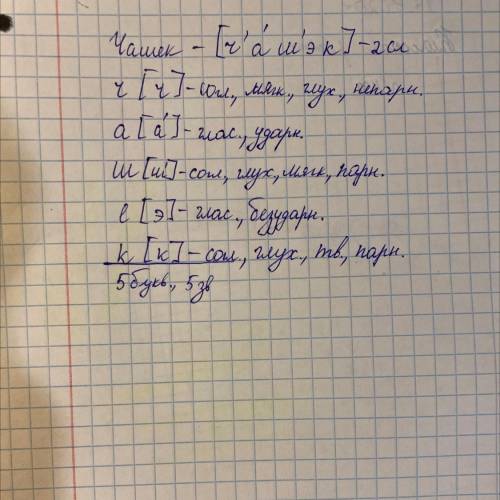 Чашек – [ч' а́ ш э к] – 2сл
ч [ч] – согл., мягк., глух., непарн.
а [а́] – глас., ударн.
ш [ш] – согл., глух., мягк., парн.
е [э] – глас., безударн.
к [к] – согл., глух., тв., парн.
5букв., 5зв